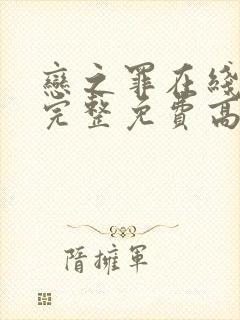 戀之罪在綫
完整免費高
隋擁軍